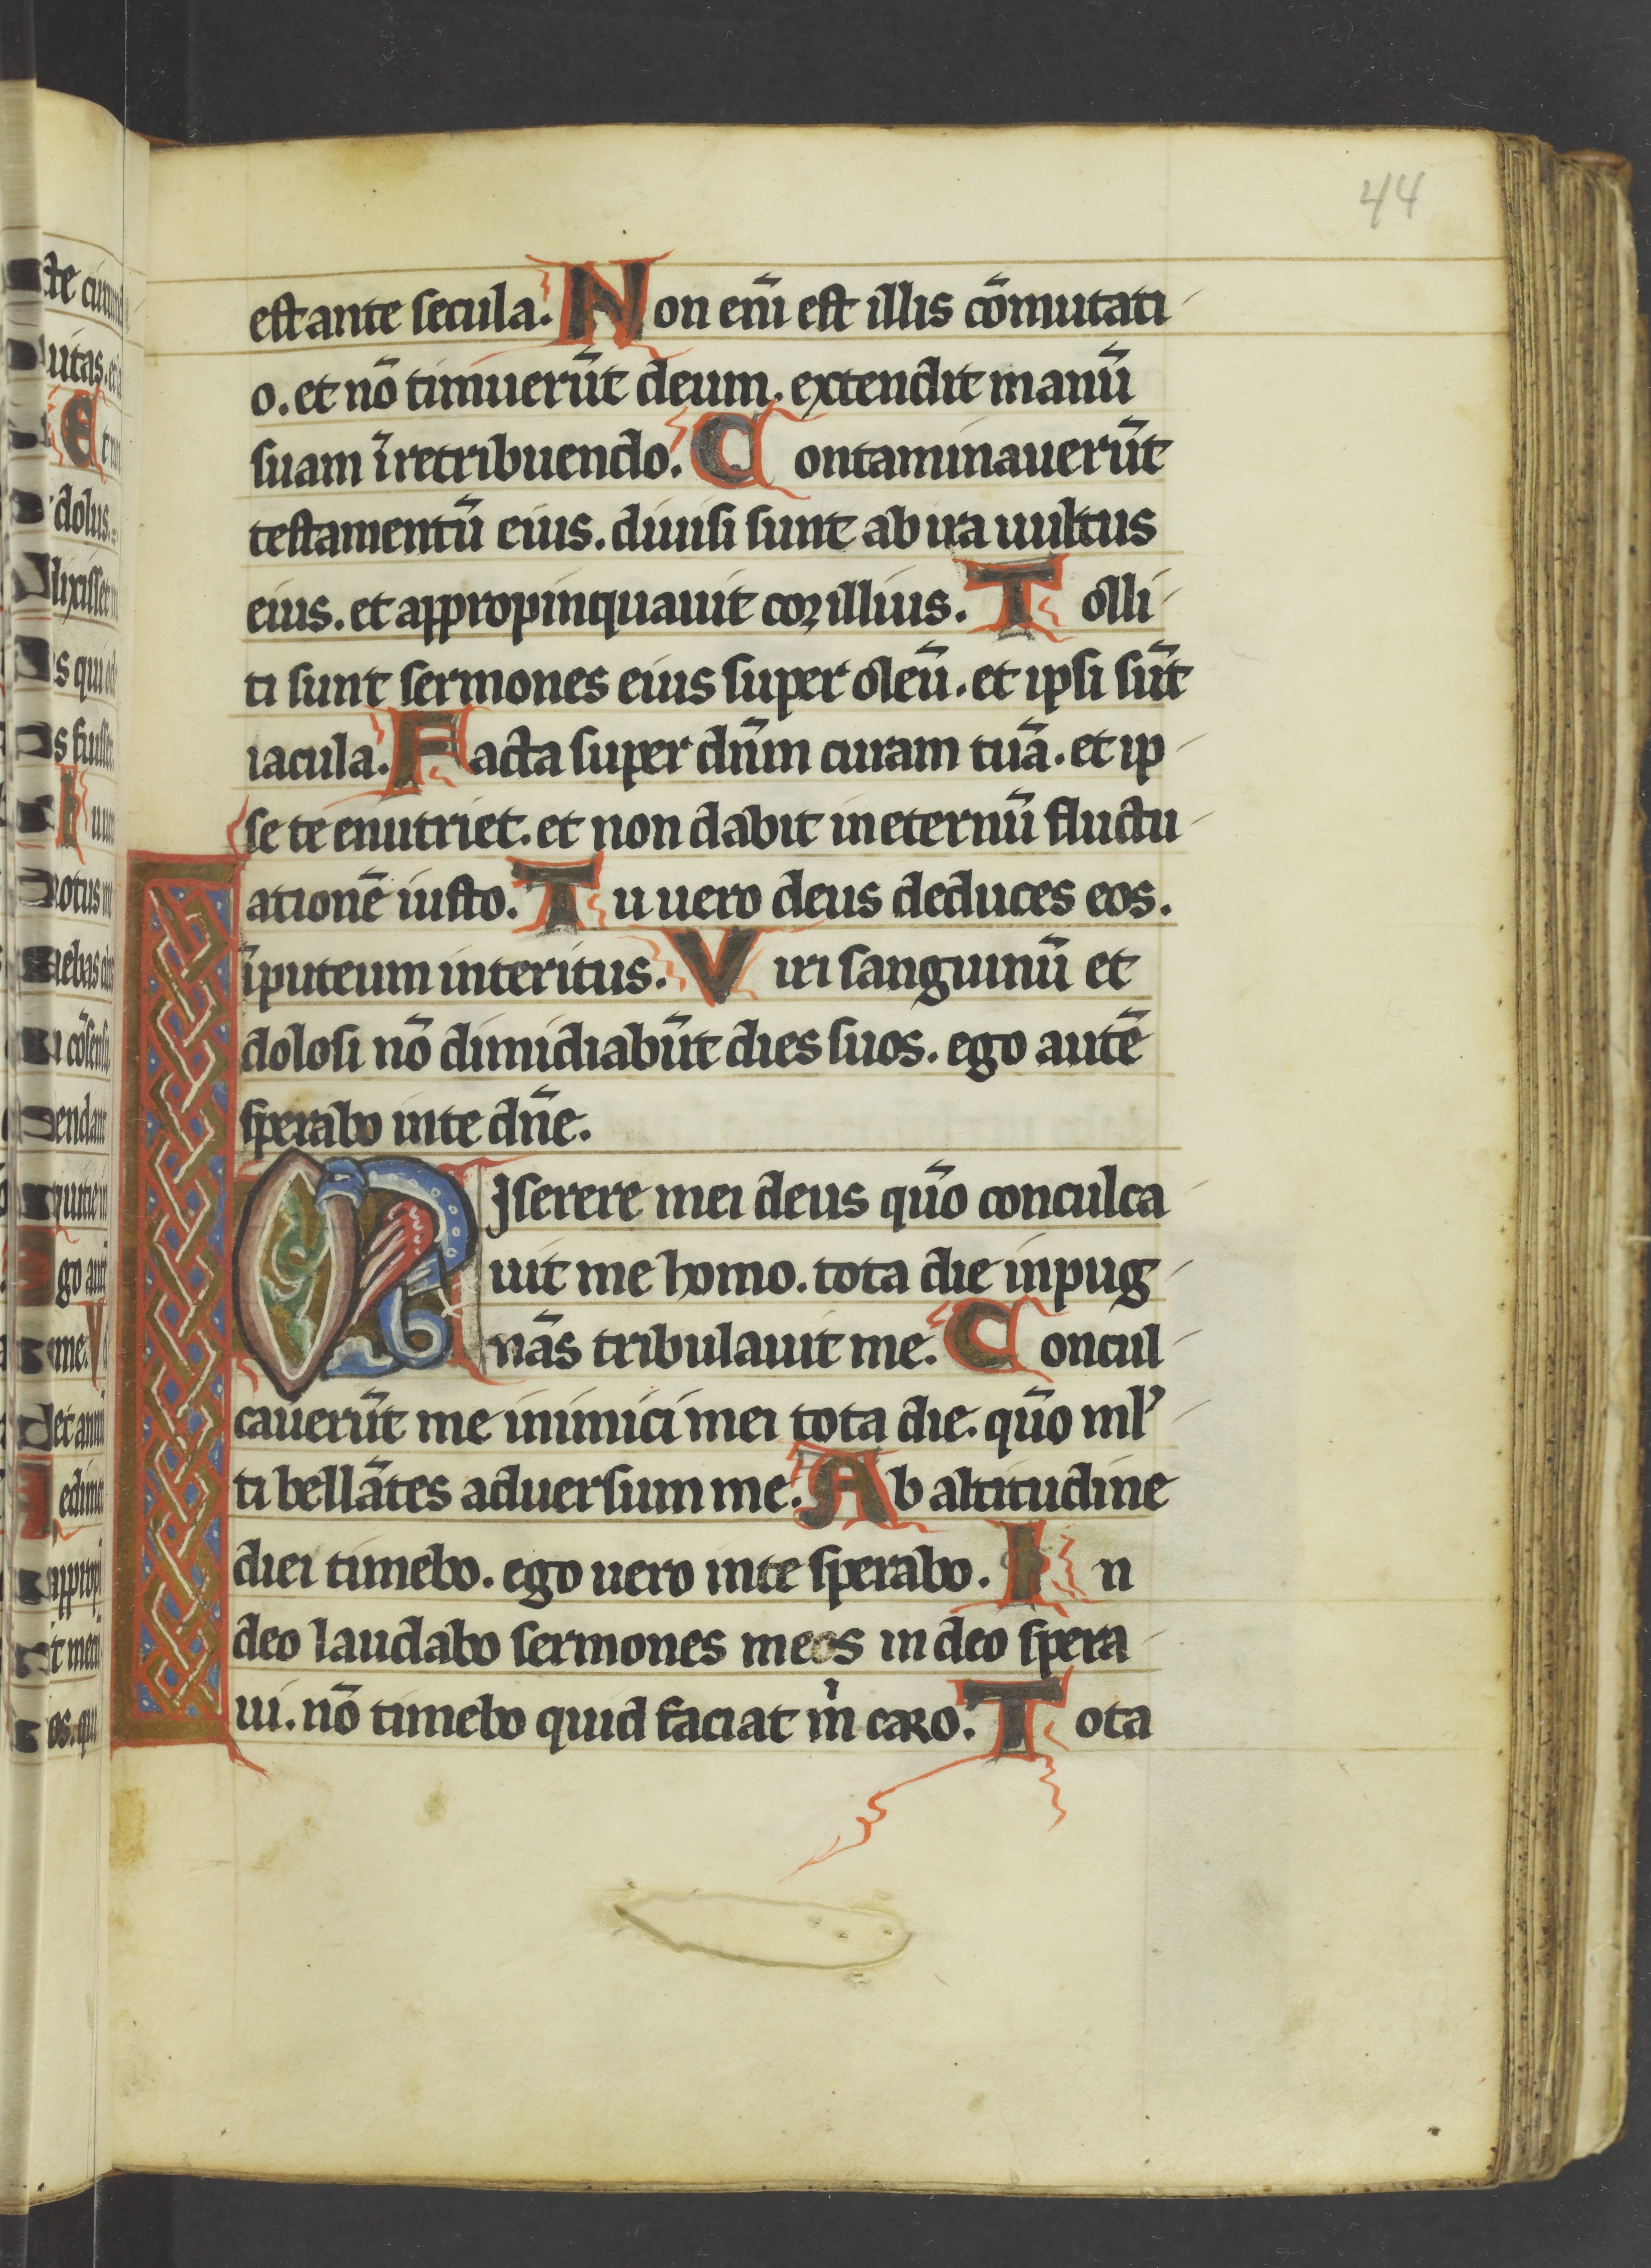 44
est ante secula. Non enī est illis cōmutati
o. et nō timuerūt deum. extendit manū
suam ī retribuendo. Contaminauerūt
testamentū eius. diuisi sunt ab ira uultus
eius. et appropinquauit cor illius. Tolli
ti sunt sermones eius super oleū. et ipsi sūt
iacula. Iacta super dn̄m curam tuā. et ip
se te enutriet. et non dabit in eternū fluctu
ationē iusto. Tu uero deus deduces eos.
ī puteum interitus. Viri sanguinū et
dolosi nō dimidiabūt dies suos. ego autē
sperabo in te dn̄e.
Miserere mei deus qūo conculca
uit me homo. tota die inpug
nās tribulauit me. Concul
cauerūt me inimici mei tota die. qūo ml'
ti bellātes aduersum me. Ab altitudine
diei timebo. ego uero in te sperabo. In
deo laudabo sermones meos in deo spera
ui. nō timebo quid faciat m̍ caro. Tota